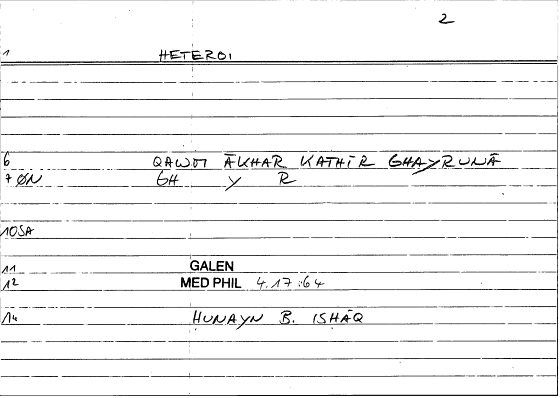 2
1 HETEROI
6 QAWM ĀKHAR KATHĪR GHAYRUNĀ
7 ØN GH Y R
10 SA
11 GALEN
12 MED PHIL 4.17:64
14 HUNAYN B. ISHĀQ